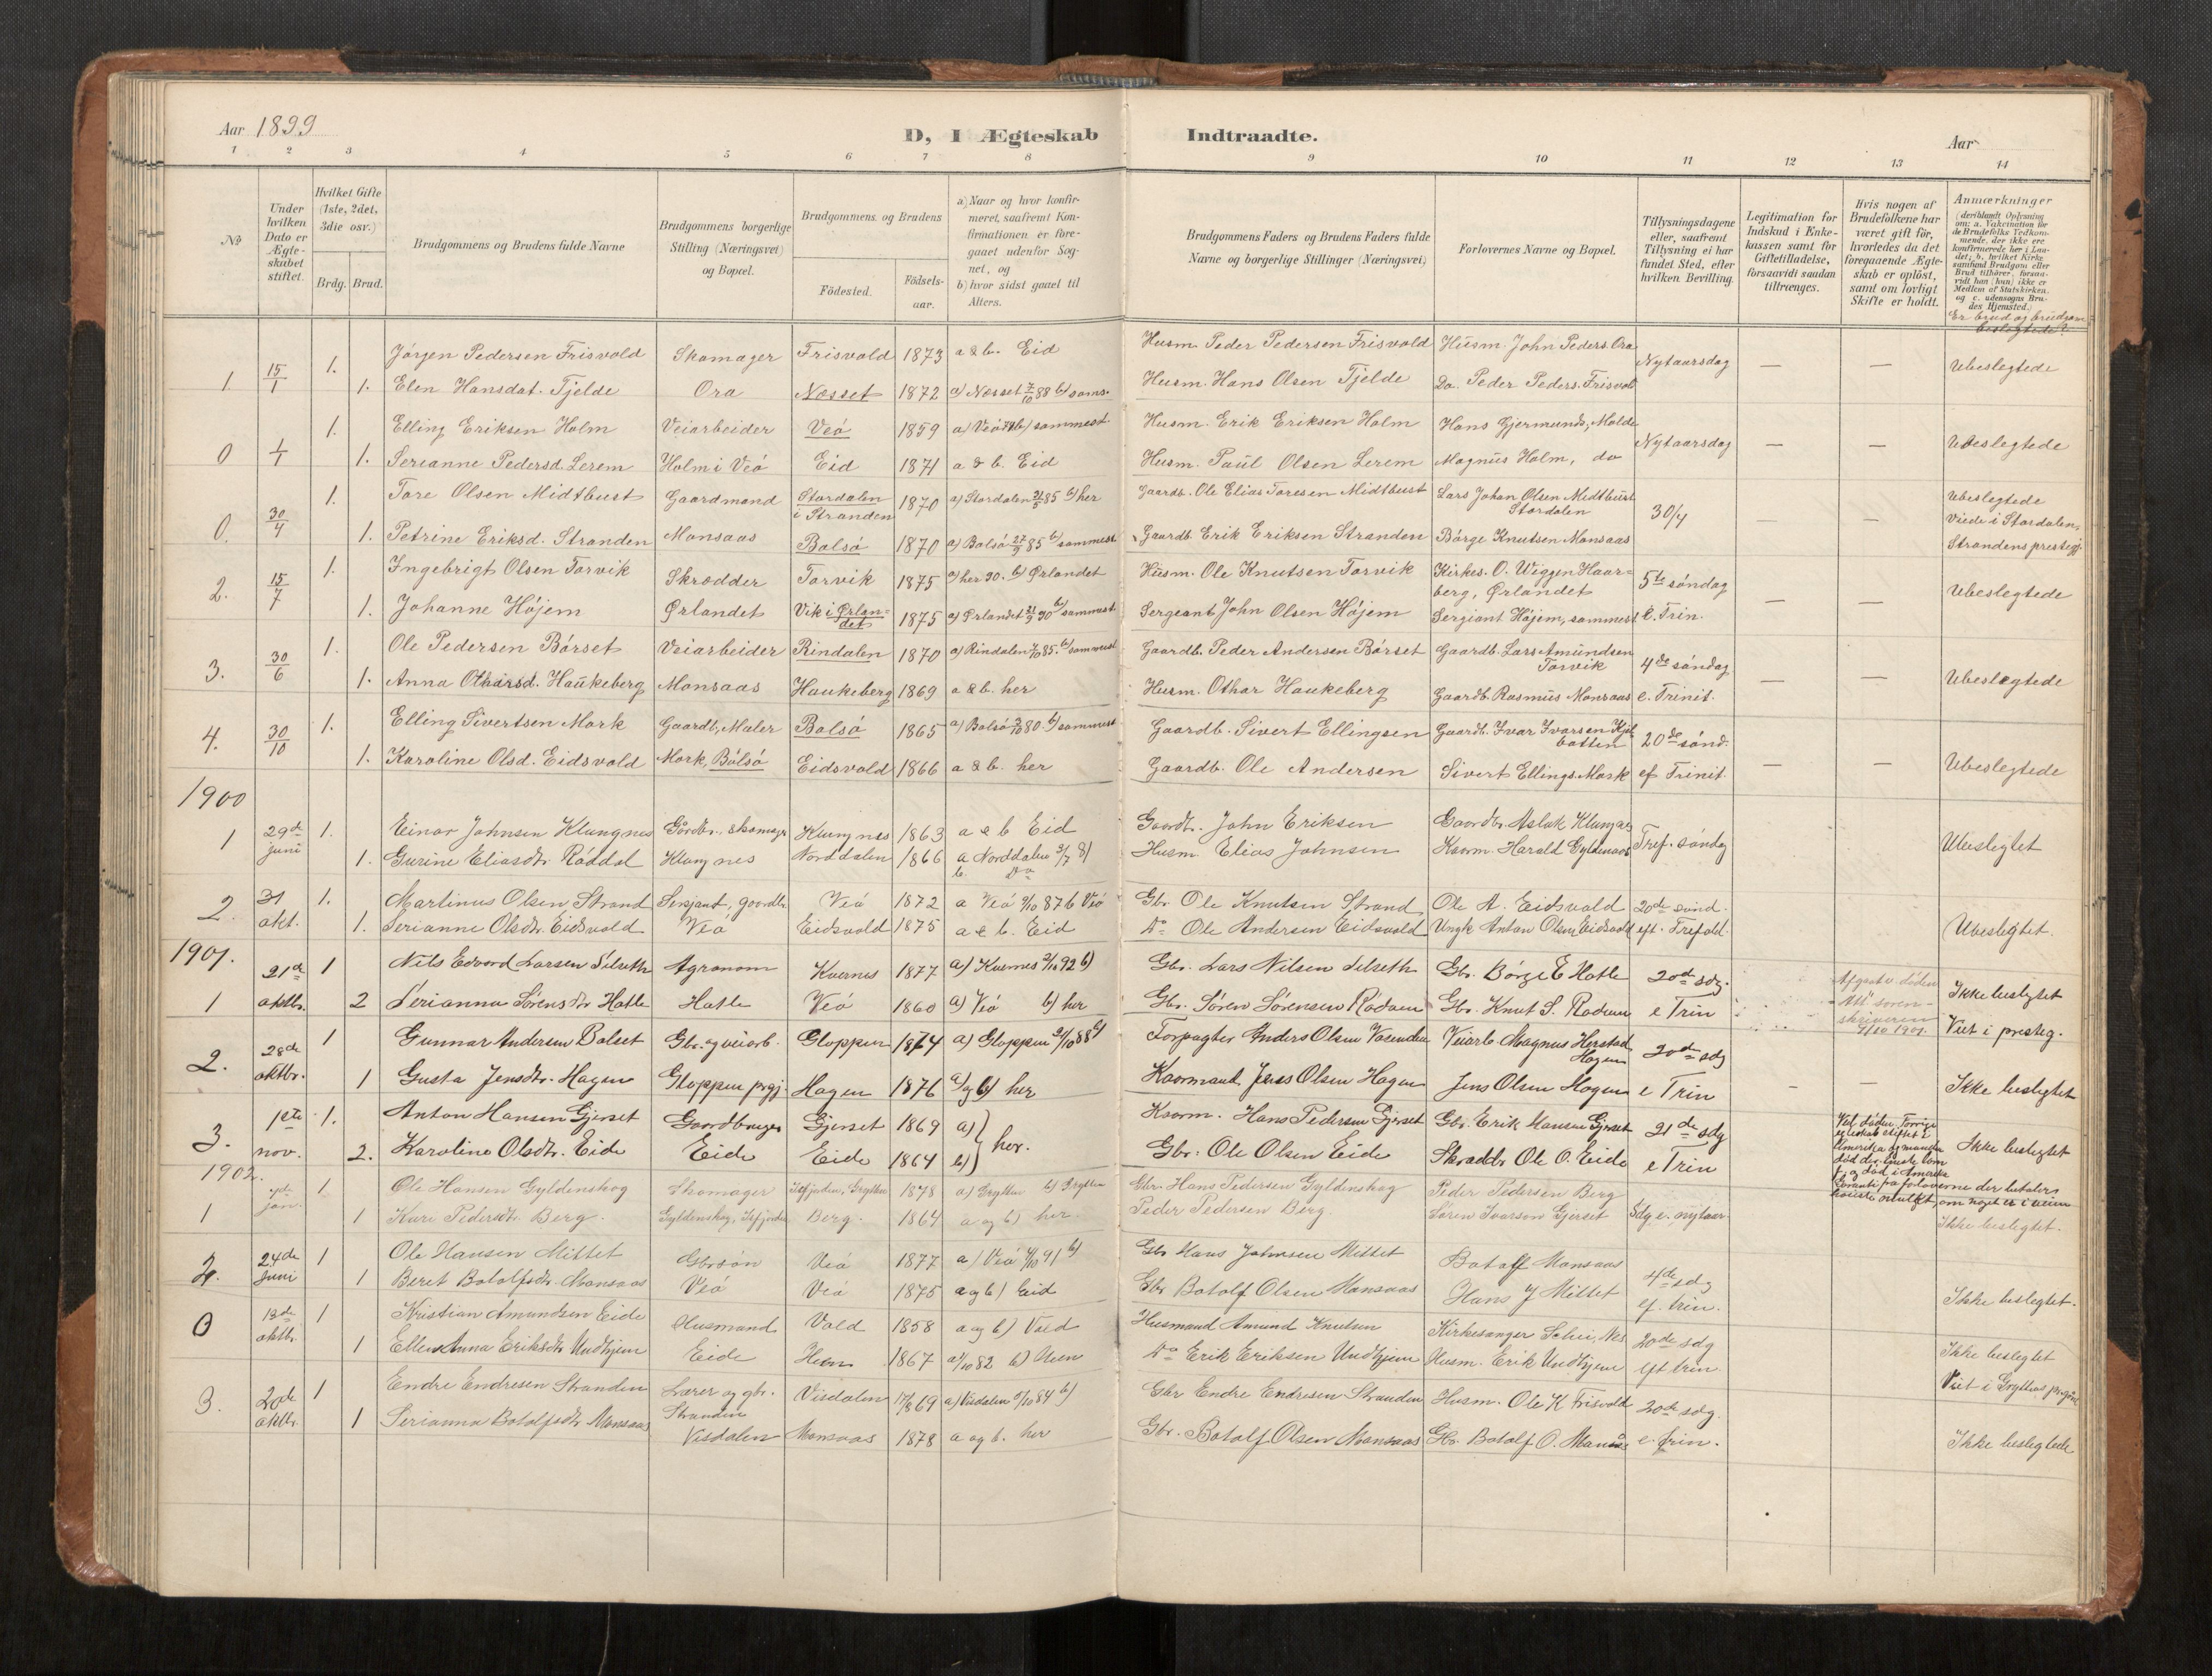 Aar 1899
D, I Ægteskab Indtraadte.
Aar
1 2 3 4 5 6 7 8 9 10 11 12 13 14
No
Under hvilken Dato er Ægteskabet stiftet.
Hvilket Gifte (1ste, 2det, 3die osv.)
Brdg. Brud.
Brudgommens og Brudens fulde Navne
Brudgommens borgerlige Stilling (Næringsvei) og Bopæl.
Brudgommens og Brudens
Fødested.
Fødsels-aar.
a) Naar og hvor konfirmeret, saafremt Konfirmationen er foregaaet udenfor Sognet, og
b) hvor sidst gaaet til Alters.
Brudgommens Faders og Brudens Faders fulde Navne og borgerlige Stillinger (Næringsvei)
Forlovernes Navne og Bopæl.
Tillysningsdagene eller, saafremt Tillysning ei har fundet Sted, efter hvilken Bevilling.
Legitimation for Indskud i Enkekassen samt for Giftetilladelse, forsaavidt saadan tiltrænges.
Hvis nogen af Brudefolkene har været gift før, hvorledes da det foregaaende Ægteskab er opløst, samt om lovligt Skifte er holdt.
Anmærkninger
(deriblandt Oplysning om: a. Vakcination for de Brudefolks Vedkommende, der ikke ere konfirmerede her i Landet; b. hvilket Kirkesamfund Brudgom eller Brud tilhører, forsaavidt han (hun) ikke er Medlem af Statskirken, og c. udensogns Brudes Hjemsted.)
Er brud og brudgom beslegtede?
1. Jørgen Pedersen Frisvold Skomager Frisvold 1873 a & b. Eid Husm. Peder Pedersen Frisvold Husm. John Peders. Ora
1 15/1 Nytaarsdag — — Ubeslegtede
1. Elen Hansdat. Tjelde Ora Næsset 1872 a) Næsset 7/10 88 b) sams. Husm. Hans Olsen Tjelde Do. Peder Peders. Frisvold
1. Elling Eriksen Holm Veiarbeider Veø 1859 a) Veø b) sammest. Husm. Erik Eriksen Holm Hans Gjermunds, Molde
0 1/1 Nytaarsdag — — Ubeslegtede
1. Serianne Pedersd. Lerem Holm i Veø Eid 1871 a & b. Eid Husm. Paul Olsen Lerem Magnus Holm, do
1. Tore Olsen Midtbust Gaardmand Stordalen i Stranden 1870 a) Stordalen 85 b) her Gaardb. Ole Elias Toresen Midtbust Lars Johan Olsen Midtbust Stordalen
0. 30/4 30/4 — — Ubeslegtede Viede i Stordalen, Strandens prestegj.
1. Petrine Eriksd. Stranden Monsaas Bolsø 1870 a) Bolsø 27/9 85 b) sammest Gaardb. Erik Eriksen Stranden Børge Knutsen Monsaas
1. Ingebrigt Olsen Torvik Skrædder Torvik 1875 a) her 90. b) Ørlandet Husm. Ole Knutsen Torvik Kirkes. O. Wiggen Haarberg, Ørlandet
2. 15/7 5te søndag e. Trin. — — Ubeslegtede
1. Johanne Højem Ørlandet Vik i Ørlandet 1875 a) Ørlandet 90 b) sammest Sergeant John Olsen Højem Sergiant Højem, sammest
1. Ole Pedersen Børset Veiarbeider Rindalen 1870 a) Rindalen 85. b) sammest Gaardb. Peder Andersen Børset Gaardb. Lars Amundsen Torvik
3. 30/6 4de søndag e. Trinit. — — Ubeslegtede
1. Anna Otharsd. Haukeberg Monsaas Haukeberg 1869 a & b. her Husm. Othar Haukeberg Gaardb. Rasmus Monsaas
1. Elling Sivertsen Mork Gaardb., Maler Bolsø 1865 a) Bolsø 80. b) sammest Gaardb. Sivert Ellingsen Gaardb. Ivar Ivarsen
4. 30/10 20de sønd. ef Trinit. — — Ubeslegtede
1. Karoline Olsd. Eidsvold Mork, Bolsø Eidsvold 1866 a & b. her Gaardb. Ole Andersen Sivert Ellings. Mork
1900
1 29de juni 1. Einar Johnsen Klungnes Gårdbr., skomager Klungnes 1863 a & b Eid Gaardbr. John Eriksen Gaardbr. Aslak Klungnes Tref. søndag
1. Gurine Eliasdtr. Røddal Klungnes Norddalen 1866 a Norddalen 3/7 81 b. Do Husm. Elias Johnsen Kaarm. Harald Gyldenaas Ubeslegtet
2. 31 okt. 1. Martinus Olsen Strand Sersjant, gaardbr. Veø 1872 a Veø 87 b Veø Gbr. Ole Knutsen Strand Ole A. Eidsvold 20de sønd.
1. Serianne Olsdtr. Eidsvold Veø Eidsvold 1875 a & b. Eid Do Ole Andersen Eidsvold Ungk. Anton Olsen Eidsvold eft. Trefold. Ubeslegtet.
1901.
1 21de oktbr. 1 Nils Edvard Larsen Silseth Agronom Kvernes 1877 a) Kvernes 92 b) Gbr. Lars Nilsen Silseth Gbr. Børge E Hatle 20de sdg.
2 Serianna Sørensdtr Hatle Hatle Veø 1860 a) Veø b) her Gbr. Søren Sørensen Rødven Gbr. Knut S. Rødven e Trin Afgaat v. døden Att. sorenskriveren 1901. Ikke beslegtet
2. 28de oktbr. 1 Gunnar Andersen Bolset Gbr. og veiarb. Gloppen 1874 a) Gloppen 88 b) Forpagter Anders Olsen Veiarb. Magnus Herstad Hagen 20de sdg Viet i presteg.
1 Gusta Jensdtr. Hagen Gloppen prgj. Hagen 1876 a) og b) her Kaarmand Jens Olsen Hagen Jens Olsen Hagen e Trin - - Ikke beslegtet
3. 1ste nov. 1. Anton Hansen Gjerset Gaardbruger Gjerset 1869 a) b) her. Kaarm. Hans Pedersen Gjerset Gbr. Erik Hansen Gjerset 21de sdg
2. Karoline Olsdtr. Eide Eide Eide 1864 Gbr. Ole Olsen Eide Skrædder Ole O. Eide e Trin Ikke beslegtet
1902.
1 jan. 1 Ole Hansen Gyldenskog Skomager Isfjorden, Grytten 1878 a) Grytten b) Grytten Gbr. Hans Pedersen Gyldenskog Peder Pedersen Berg
1 Kari Pedersdtr. Berg. Gyldenskog, Isfjorden Berg. 1864 a og b) her. Peder Pedersen Berg. Søren Ivarson Gjerset Sdg e. nytaar. Ikke beslegtet.
2. 24de juni 1 Ole Hansen Mittet Gbrsøn Veø 1877 a) Veø 91 b) Gbr Hans Johnsen Mittet Botolf Monsaas 4de sdg
1 Beret Botolfsdtr. Monsaas Veø Veø 1875 a og b) Eid Gbr Botolf Olsen Monsaas Hans J Mittet ef. trin. Ikke beslegtet.
0 oktbr. 1 Kristian Amundsen Eide Husmand Vold 1858 a og b) Vold Husmand Amund Knutsen Kirkesanger Schei, Nes 20de sdg
1 Ellen Anna Eriksdtr Undhjem Eide Hen 1867 82 b) Hen Do Erik Eriksen Undhjem Husm. Erik Undhjem eft trin. Ikke beslegtet Viet i Gryttens
3. 20de oktbr. 1 Endre Endresen Stranden Lærer og gbr. Visdalen 69 a) Visdalen 84 b) Gbr Endre Endresen Stranden Husm. Ole K Frisvold 20de sdg.
1 Serianna Botolfsdtr Monsaas Stranden Visdalen Monsaas 1878 a og b. her Gbr. Botolf Olsen Monsaas Gbr. Botolf O. e. trin. Ikke beslegtede